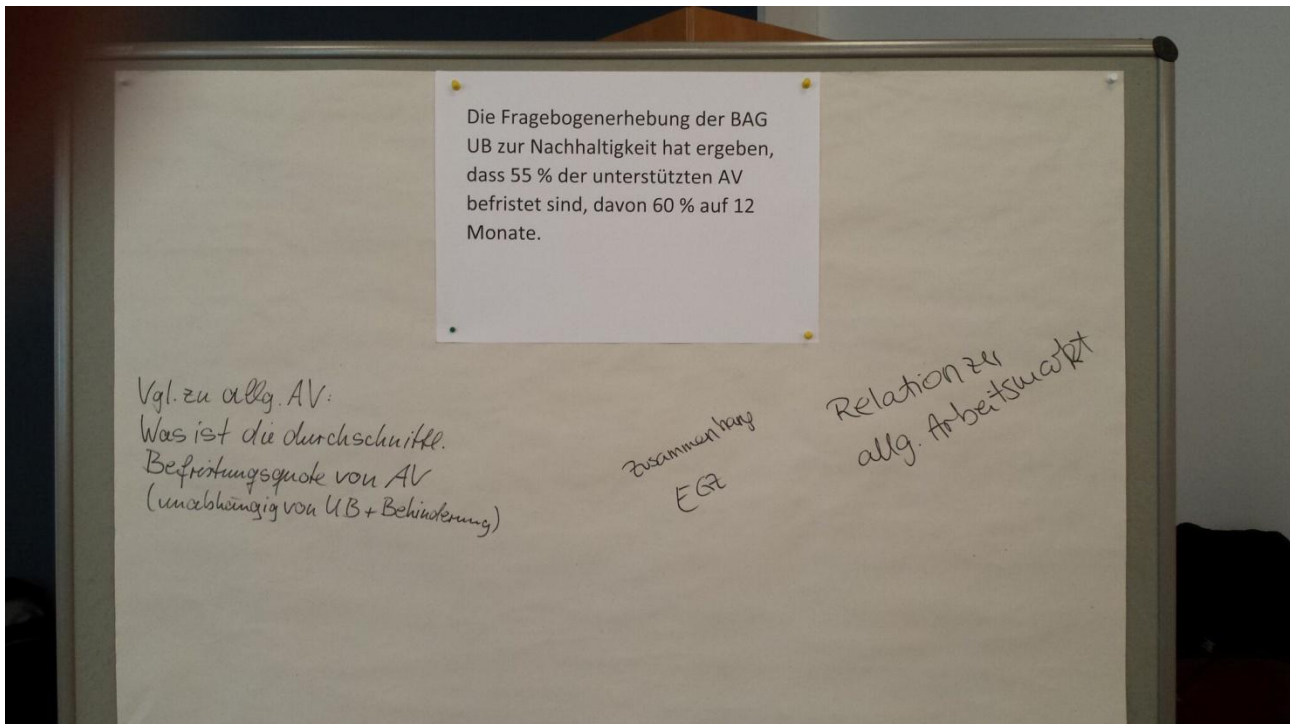 Die Fragebogenerhebung der BAG
UB zur Nachhaltigkeit hat ergeben,
dass 55 % der unterstützten AV
befristet sind, davon 60 % auf 12
Monate.
Vgl. zu allg. AV:
Was ist die durchschnittl.
Befristungsquote von AV
(unabhängig von UB + Behinderung)
Zusammenhang
EGZ
Relation zu
allg. Arbeitsmarkt